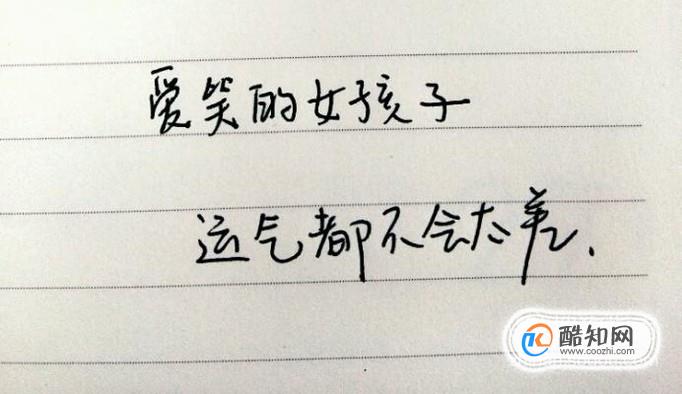 爱笑的女孩子
运气都不会太差.
酷知网
www.coozhi.com